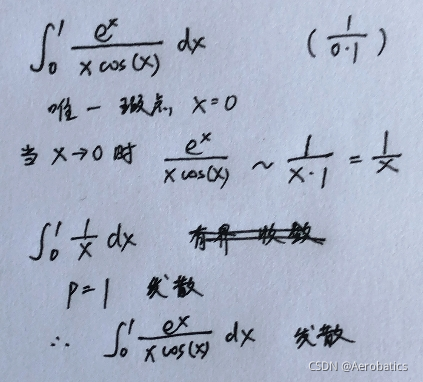 ∫₀¹ eˣ/(x cos(x)) dx (1/(0·1))
唯一瑕点, x=0
当 x→0 时 eˣ/(x cos(x)) ~ 1/(x·1) = 1/x
∫₀¹ 1/x dx 有界 收敛
P=1 发散
∴ ∫₀¹ eˣ/(x cos(x)) dx 发散
CSDN @Aerobatics